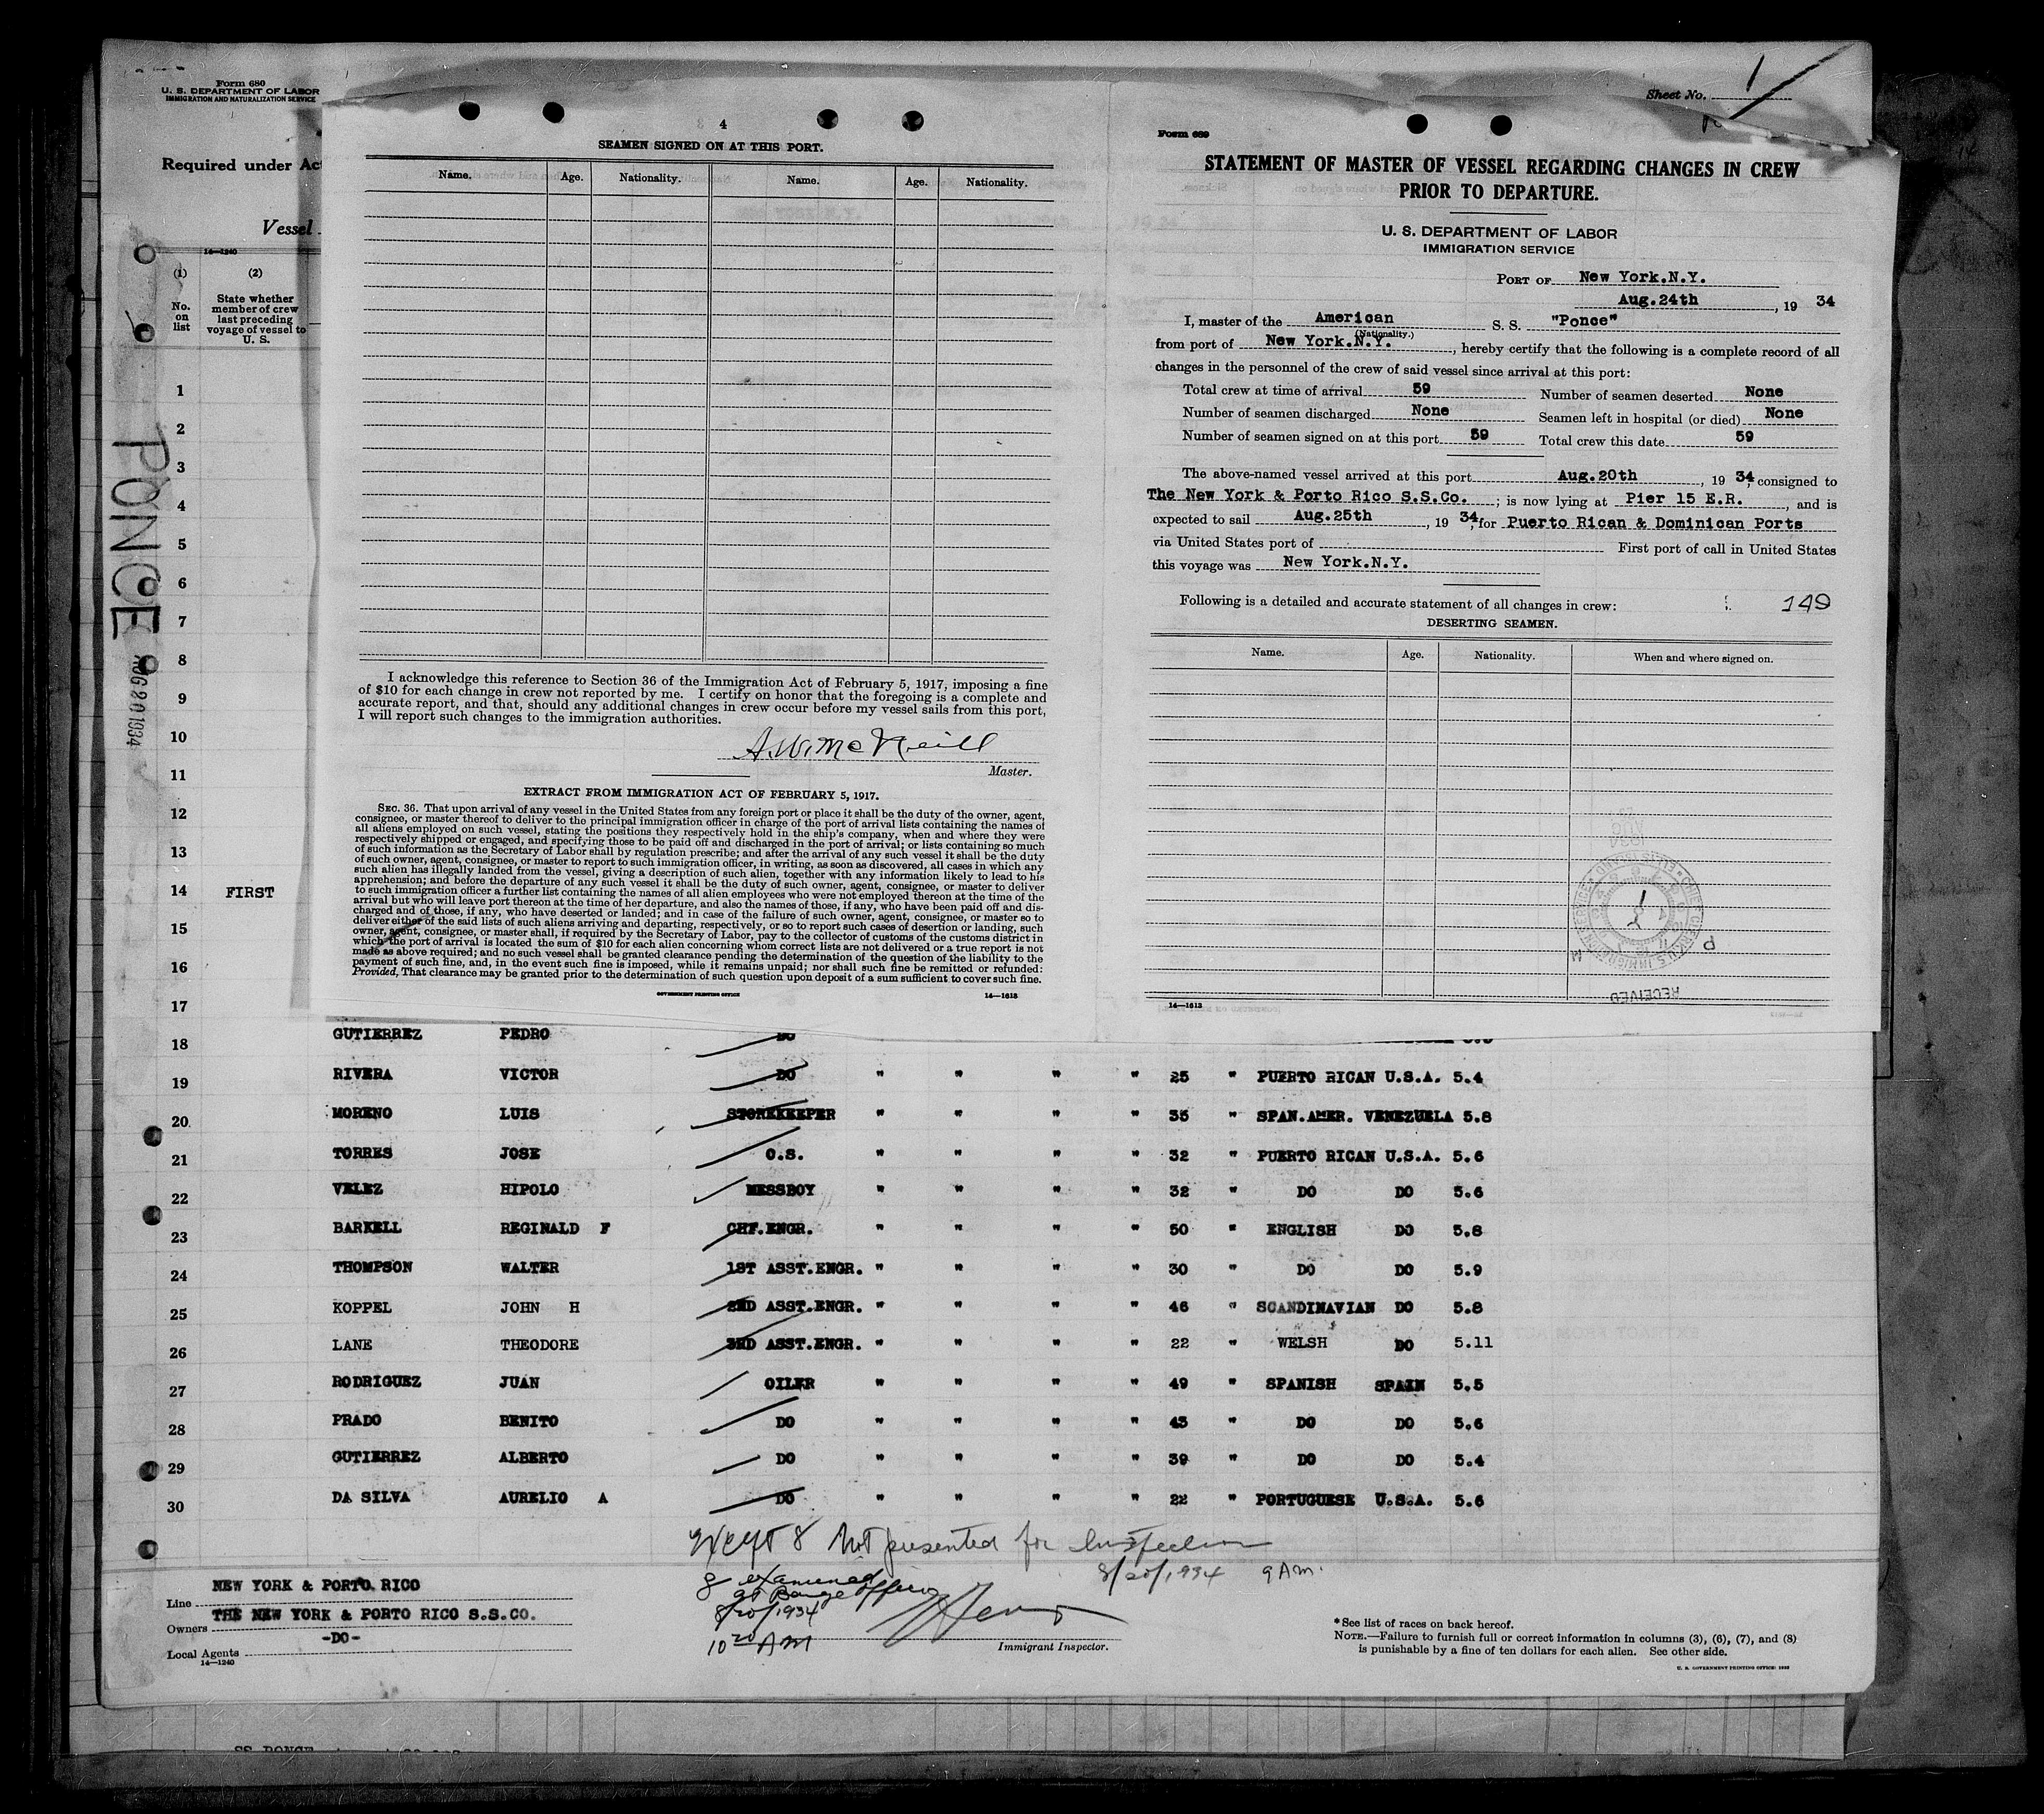 Form 680
U. S. DEPARTMENT OF LABOR
IMMIGRATION AND NATURALIZATION SERVICE
Required under Ac
Vessel
14—1240
(1)
No.
on
list
(2)
State whether
member of crew
last preceding
voyage of vessel to
U. S.
Sheet No. 1
PONCE
AUG 20 1934
4
SEAMEN SIGNED ON AT THIS PORT.
Name. Age. Nationality. Name. Age. Nationality.
I acknowledge this reference to Section 36 of the Immigration Act of February 5, 1917, imposing a fine
of $10 for each change in crew not reported by me. I certify on honor that the foregoing is a complete and
accurate report, and that, should any additional changes in crew occur before my vessel sails from this port,
I will report such changes to the immigration authorities.
A.W. McNeill
Master.
EXTRACT FROM IMMIGRATION ACT OF FEBRUARY 5, 1917.
SEC. 36. That upon arrival of any vessel in the United States from any foreign port or place it shall be the duty of the owner, agent,
consignee, or master thereof to deliver to the principal immigration officer in charge of the port of arrival lists containing the names of
all aliens employed on such vessel, stating the positions they respectively hold in the ship's company, when and where they were
respectively shipped or engaged, and specifying those to be paid off and discharged in the port of arrival; or lists containing so much
of such information as the Secretary of Labor shall by regulation prescribe; and after the arrival of any such vessel it shall be the duty
of such owner, agent, consignee, or master to report to such immigration officer, in writing, as soon as discovered, all cases in which any
such alien has illegally landed from the vessel, giving a description of such alien, together with any information likely to lead to his
apprehension; and before the departure of any such vessel it shall be the duty of such owner, agent, consignee, or master to deliver
to such immigration officer a further list containing the names of all alien employees who were not employed thereon at the time of the
arrival but who will leave port thereon at the time of her departure, and also the names of those, if any, who have been paid off and dis-
charged and of those, if any, who have deserted or landed; and in case of the failure of such owner, agent, consignee, or master so to
deliver either of the said lists of such aliens arriving and departing, respectively, or so to report such cases of desertion or landing, such
owner, agent, consignee, or master shall, if required by the Secretary of Labor, pay to the collector of customs of the customs district in
which the port of arrival is located the sum of $10 for each alien concerning whom correct lists are not delivered or a true report is not
made as above required; and no such vessel shall be granted clearance pending the determination of the question of the liability to the
payment of such fine, and, in the event such fine is imposed, while it remains unpaid; nor shall such fine be remitted or refunded:
Provided, That clearance may be granted prior to the determination of such question upon deposit of a sum sufficient to cover such fine.
GOVERNMENT PRINTING OFFICE 14—1613
Form 689
STATEMENT OF MASTER OF VESSEL REGARDING CHANGES IN CREW
PRIOR TO DEPARTURE.
U. S. DEPARTMENT OF LABOR
IMMIGRATION SERVICE
PORT OF New York.N.Y.
Aug.24th, 19 34
I, master of the American S. S. "Ponce"
(Nationality.)
from port of New York.N.Y., hereby certify that the following is a complete record of all
changes in the personnel of the crew of said vessel since arrival at this port:
Total crew at time of arrival 59 Number of seamen deserted None
Number of seamen discharged None Seamen left in hospital (or died) None
Number of seamen signed on at this port 59 Total crew this date 59
The above-named vessel arrived at this port Aug.20th, 19 34, consigned to
The New York & Porto Rico S.S.Co.; is now lying at Pier 15 E.R., and is
expected to sail Aug.25th, 19 34, for Puerto Rican & Dominican Ports
via United States port of First port of call in United States
this voyage was New York.N.Y.
Following is a detailed and accurate statement of all changes in crew: 149
DESERTING SEAMEN.
Name. Age. Nationality. When and where signed on.
RECEIVED
14—1613
1
2
3
4
5
6
7
8
9
10
11
12
13
14 FIRST
15
16
17
18 GUTIERREZ PEDRO DO
19 RIVERA VICTOR DO " " " " 25 " PUERTO RICAN U.S.A. 5.4
20 MORENO LUIS STOREKEEPER " " " " 35 " SPAN.AMER. VENEZUELA 5.8
21 TORRES JOSE O.S. " " " " 32 " PUERTO RICAN U.S.A. 5.6
22 VELEZ HIPOLO MESSBOY " " " " 32 " DO DO 5.6
23 BARKELL REGINALD F CHF.ENGR. " " " " 50 " ENGLISH DO 5.8
24 THOMPSON WALTER 1ST ASST.ENGR. " " " " 30 " DO DO 5.9
25 KOPPEL JOHN H 2ND ASST.ENGR. " " " " 46 " SCANDINAVIAN DO 5.8
26 LANE THEODORE 3RD ASST.ENGR. " " " " 22 " WELSH DO 5.11
27 RODRIGUEZ JUAN OILER " " " " 49 " SPANISH SPAIN 5.5
28 PRADO BENITO DO " " " " 43 " DO DO 5.6
29 GUTIERREZ ALBERTO DO " " " " 39 " DO DO 5.4
30 DA SILVA AURELIO A DO " " " " 22 " PORTUGUESE U.S.A. 5.6
except 8 Not presented for Inspection
8/20/1934 9 AM.
8 examined
at Barge Office
8/20/1934
10 20 AM
Immigrant Inspector.
Line NEW YORK & PORTO RICO
Owners THE NEW YORK & PORTO RICO S.S.CO.
Local Agents -DO-
14—1240
*See list of races on back hereof.
NOTE.—Failure to furnish full or correct information in columns (3), (6), (7), and (8)
is punishable by a fine of ten dollars for each alien. See other side.
U. S. GOVERNMENT PRINTING OFFICE
SS PONCE